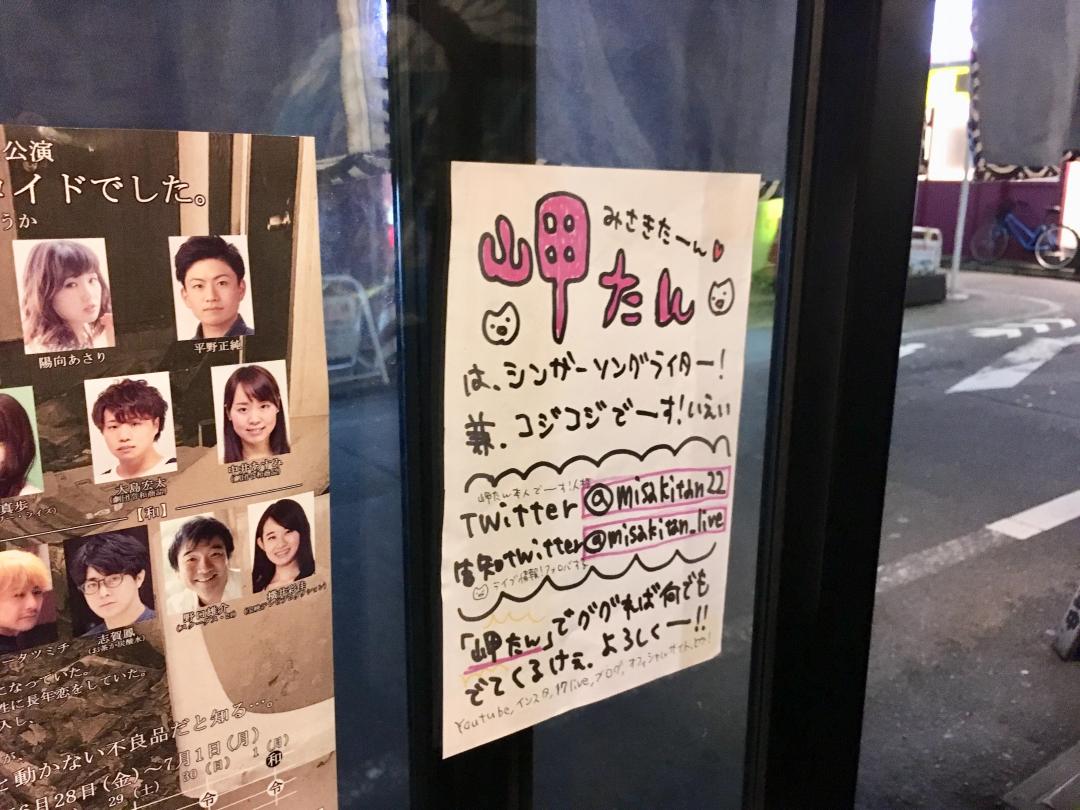 公演
イドでした。
うか
陽向あさり
平野正純
真歩
大島宏太
(劇団令和商記)
中井あすみ
【和】
タツミチ
志賀鳳
(お茶か炭酸水)
野口雄介
になっていた。
性に長年恋をしていた。
入し、
が、
と動かない不良品だと知る…。
6月28日(金)〜7月1日(月)
29(土) 30(日) 1(月)
和
令 令
岬たん
みさきたーん
は、シンガーソングライター!
兼、コジコジでーす!いえい
岬たん本人でーす!
Twitter @misakitan22
告知twitter @misakitan_live
ライブ情報!フォロバする
「岬たん」でググれば何でも
でてくるけぇ、よろしくー!!
Youtube, インスタ, 17live, ブログ, オフィシャルサイト, とか!